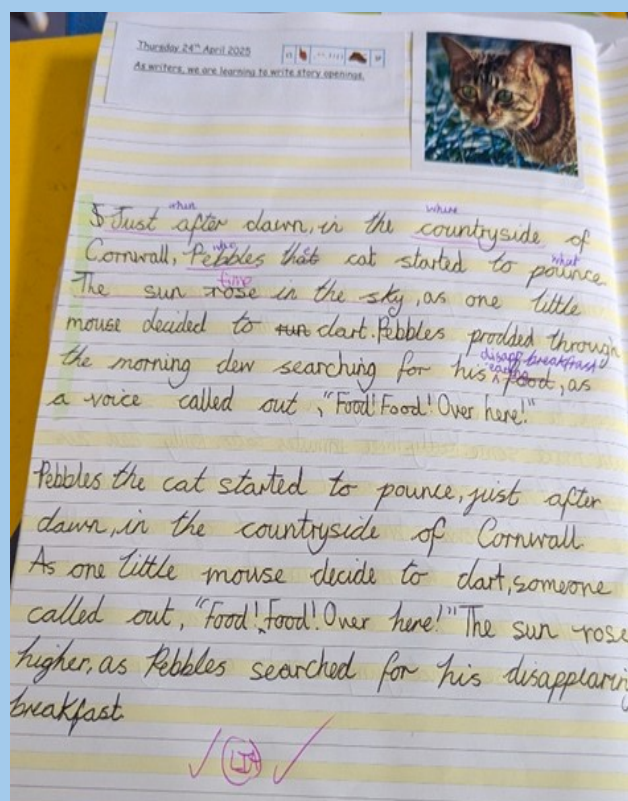 Thursday 24th April 2025
As writers, we are learning to write story openings.
when where
$ Just after dawn, in the countryside of
who what
Cornwall, Pebbles the cat started to pounce
time
The sun rose in the sky, as one little
mouse decided to run dart. Pebbles prodded through
disapp breakfast
the morning dew searching for his food, as
earing
a voice called out, "Food! Food! Over here!"
Pebbles the cat started to pounce, just after
dawn, in the countryside of Cornwall.
As one little mouse decide to dart, someone
called out, "Food! Food! Over here!" The sun rose
higher, as Pebbles searched for his disappearing
breakfast.